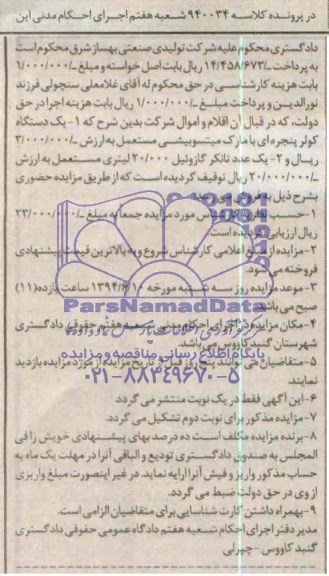 در پرونده کلاسه ۹۴۰۰۳۴ شعبه هفتم اجرای احکام مدنی این
دادگستری محکوم علیه شرکت تولیدی صنعتی بهساز شرق محکوم است
به پرداخت ۱۴/۴۵۸/۶۷۳/ـ ریال بابت اصل خواسته و مبلغ ۱/۰۰۰/۰۰۰/ـ
بابت هزینه کارشناسی در حق محکوم له آقای غلامعلی سنچولی فرزند
نورالدین و پرداخت مبلغ ۱/۰۰۰/۰۰۰/ـ ریال بابت هزینه اجرا در حق
دولت، که در قبال آن اقلام و اموال شرکت بدین شرح که ۱- یک دستگاه
کولر پنجره ای با مارک میتسوبیشی مستعمل به ارزش ۳/۰۰۰/۰۰۰/ـ
ریال و ۲- یک عدد تانکر گازوئیل ۲۰/۰۰۰ لیتری مستعمل به ارزش
۲۰/۰۰۰/۰۰۰/ـ ریال توقیف گردیده است که از طریق مزایده حضوری
بشرح ذیل به فروش می رسد
۱- حسب نظریه کارشناس مورد مزایده جمعا به مبلغ ۲۳/۰۰۰/۰۰۰/ـ
ریال ارزیابی گردیده است
۲- مزایده از مبلغ اعلامی کارشناس شروع و به بالاترین قیمت پیشنهادی
فروخته می شود
۳- موعد مزایده روز سه شنبه مورخه ۱۳۹۴/۶/۱۰ ساعت یازده (۱۱)
صبح می باشد
۴- مکان مزایده دفتر اجرای احکام مدنی شعبه هفتم حقوقی دادگستری
شهرستان گنبد کاووس می باشد
۵- متقاضیان می توانند پنج روز قبل از تاریخ مزایده از مورد مزایده بازدید
نمایند.
۶- این آگهی فقط در یک نوبت منتشر می گردد.
۷- مزایده مذکور برای نوبت دوم تشکیل می گردد.
۸- برنده مزایده مکلف است ده درصد بهای پیشنهادی خویش را فی
المجلس به صندوق دادگستری تودیع و الباقی آنرا در مهلت یک ماه به
حساب مذکور واریز و فیش آنرا ارایه نماید. در غیر اینصورت مبلغ واریزی
از وی در حق دولت ضبط می گردد.
۹- بهمراه داشتن کارت شناسایی برای متقاضیان الزامی است.
مدیر دفتر اجرای احکام شعبه هفتم دادگاه عمومی حقوقی دادگستری
گنبد کاووس - چپرلی
ParsNamadData
پایگاه اطلاع رسانی مناقصه و مزایده
۰۲۱-۸۸۳۴۹۶۷۰-۵